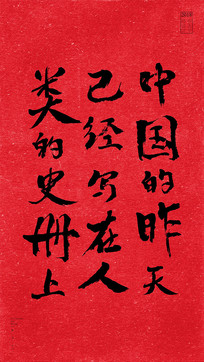 中国的昨天
已经写在人
类的史册上